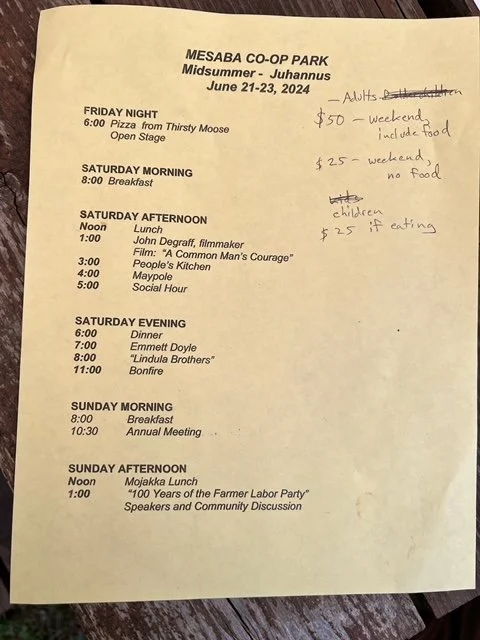 MESABA CO-OP PARK
Midsummer - Juhannus
June 21-23, 2024
FRIDAY NIGHT
6:00 Pizza from Thirsty Moose
Open Stage
SATURDAY MORNING
8:00 Breakfast
SATURDAY AFTERNOON
Noon Lunch
1:00 John Degraff, filmmaker
Film: "A Common Man's Courage"
3:00 People's Kitchen
4:00 Maypole
5:00 Social Hour
SATURDAY EVENING
6:00 Dinner
7:00 Emmett Doyle
8:00 "Lindula Brothers"
11:00 Bonfire
SUNDAY MORNING
8:00 Breakfast
10:30 Annual Meeting
SUNDAY AFTERNOON
Noon Mojakka Lunch
1:00 "100 Years of the Farmer Labor Party"
Speakers and Community Discussion
- Adults
$50 - weekend,
include food
$25 - weekend,
no food
kids
children
$25 if eating